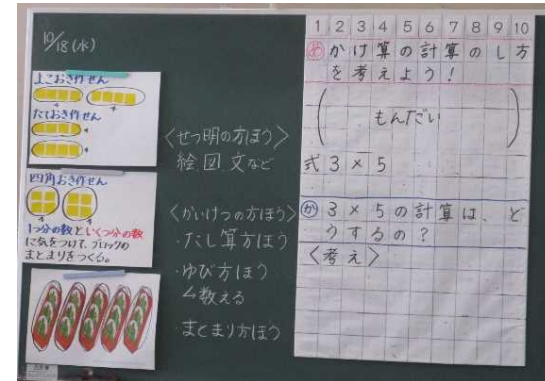 10/18(水)
よこおき作せん
4 4
たておき作せん
4
4
四角おき作せん
4 4
1つ分の数といくつ分の数
に気をつけて、ブロックの
まとまりをつくる。
〈せつ明の方ほう〉
絵図文など
〈かいけつの方ほう〉
・たし算方ほう
・ゆび方ほう
数える
・まとまり方ほう
1 2 3 4 5 6 7 8 9 10
め かけ算の計算のし方
を考えよう!
もんだい
式 3×5
か 3×5の計算は、ど
うするの?
〈考え〉